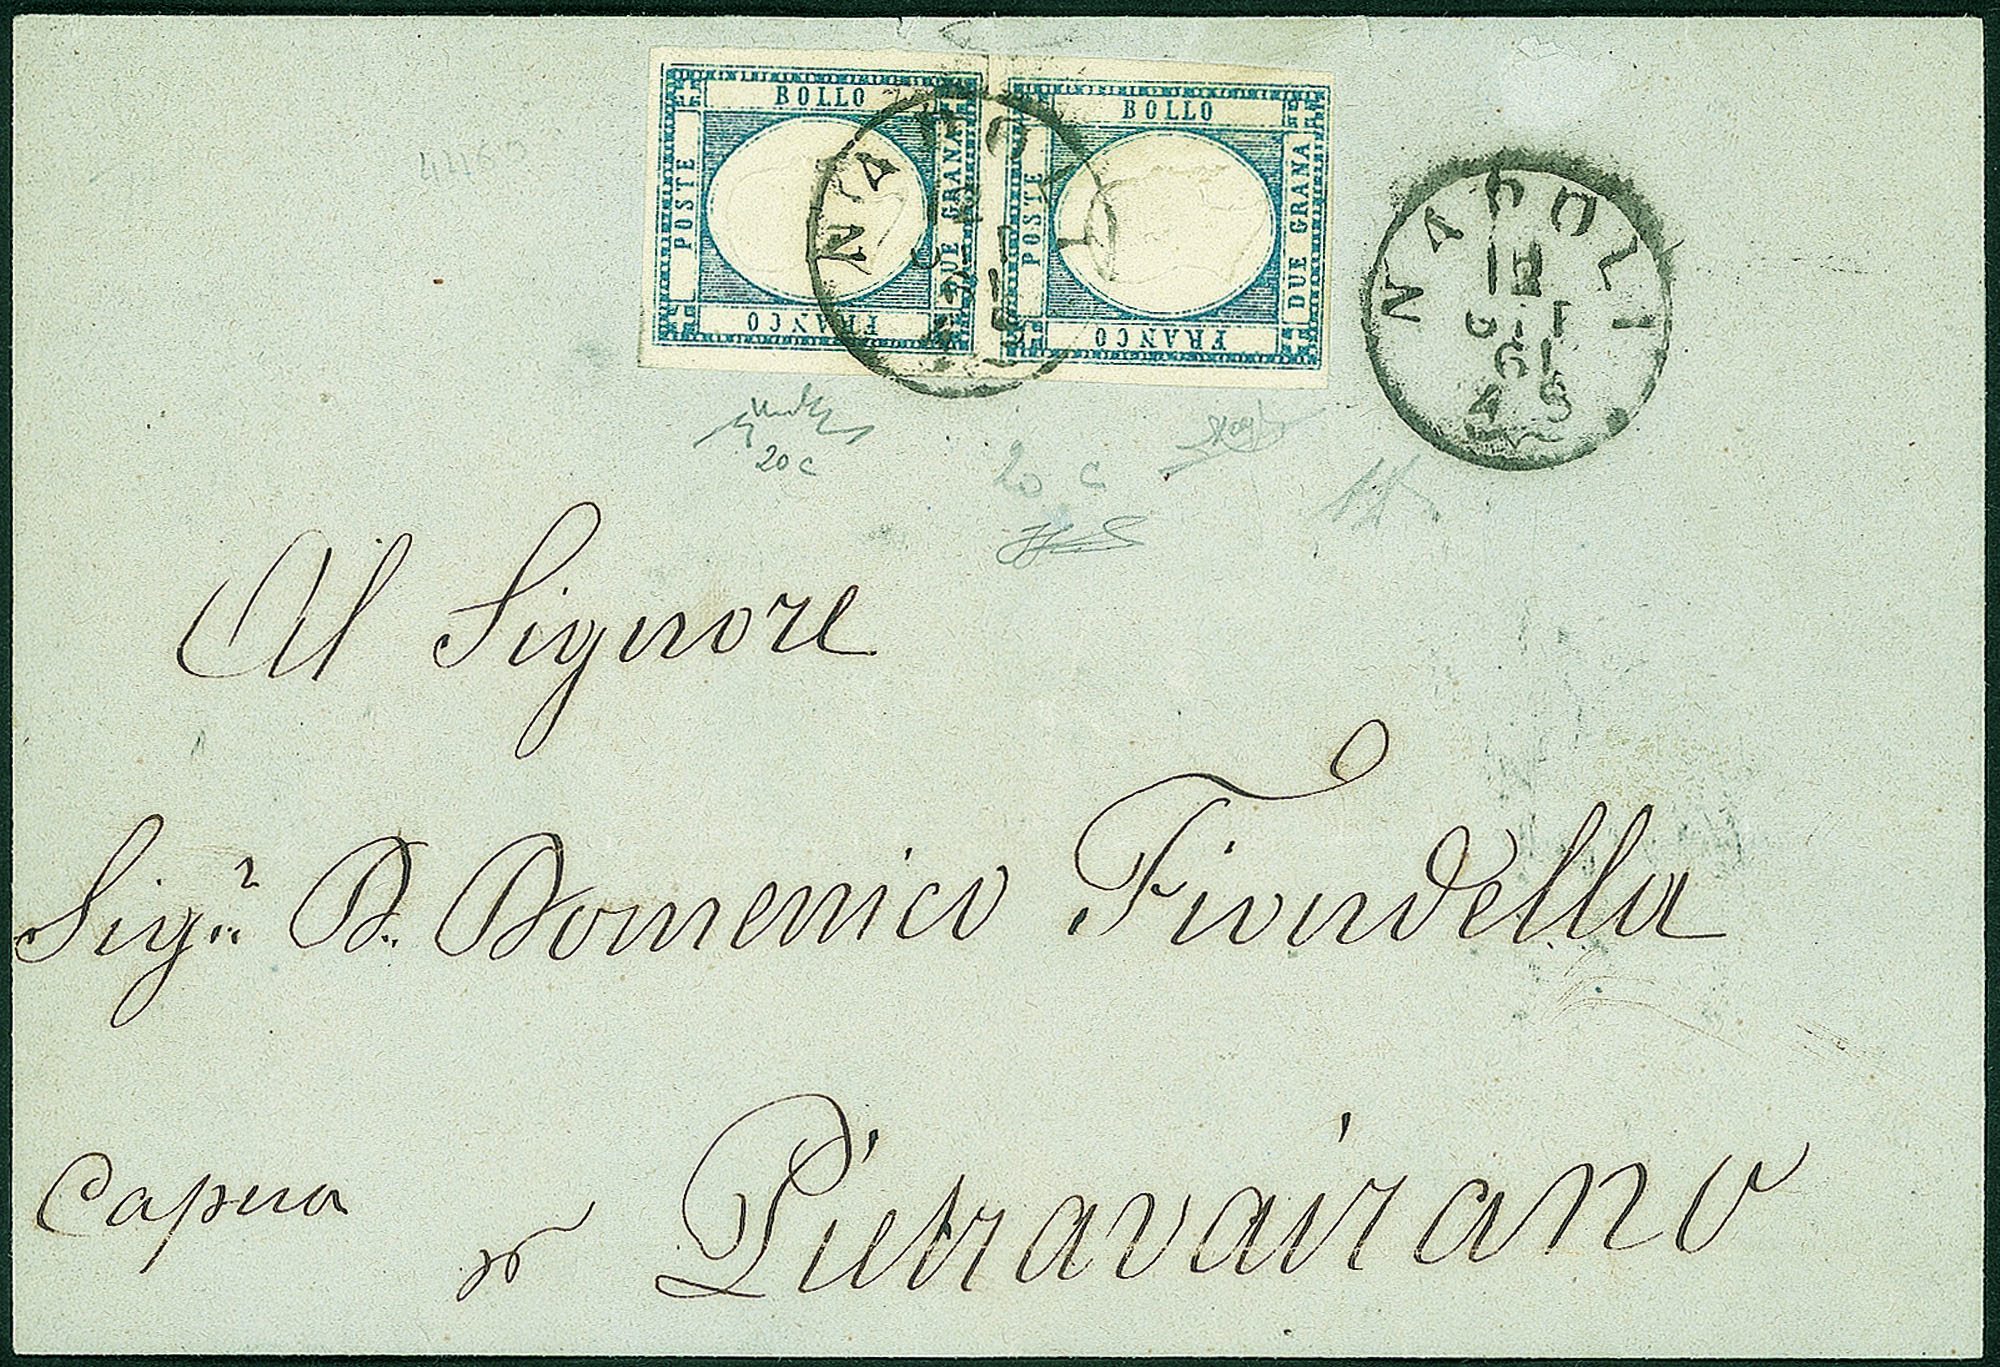 BOLLO
POSTE
DUE GRANA
FRANCO
BOLLO
POSTE
DUE GRANA
FRANCO
NAPOLI
NAPOLI
12
61
20 c
20 c
Al Signore
Sig.r D. Domenico Fiondella
Capua
pr Pietravairano